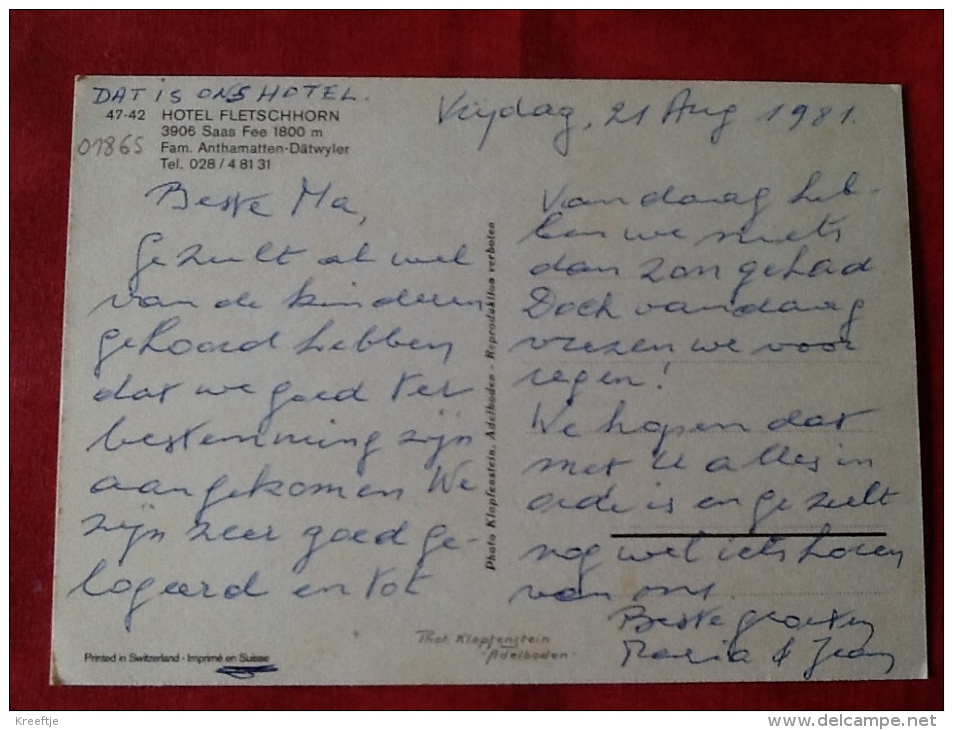 DAT IS ONS HOTEL.
47-42 HOTEL FLETSCHHORN
3906 Saas Fee 1800 m
01865
Fam. Anthamatten-Dätwyler
Tel. 028/4 81 31
Vrijdag, 21 Aug 1981.
Beste Ma,
Ge zult al wel
van de kinderen
gehoord hebben
dat we goed ter
bestemming zijn
aangekomen We
zijn zeer goed ge-
logeerd en tot
Vandaag heb-
ben we niets
dan zon gehad.
Doch vandaag
vrezen we voor
regen!
We hopen dat
met U alles in
orde is en ge zult
nog wel iets horen
van ons.
Beste groeten
Maria & Jean
Photo Klopfenstein, Adelboden - Reproduktion verboten
Phot Klopfenstein
Adelboden
Printed in Switzerland - Imprimé en Suisse
Kreeftje
http://www.delcampe.net